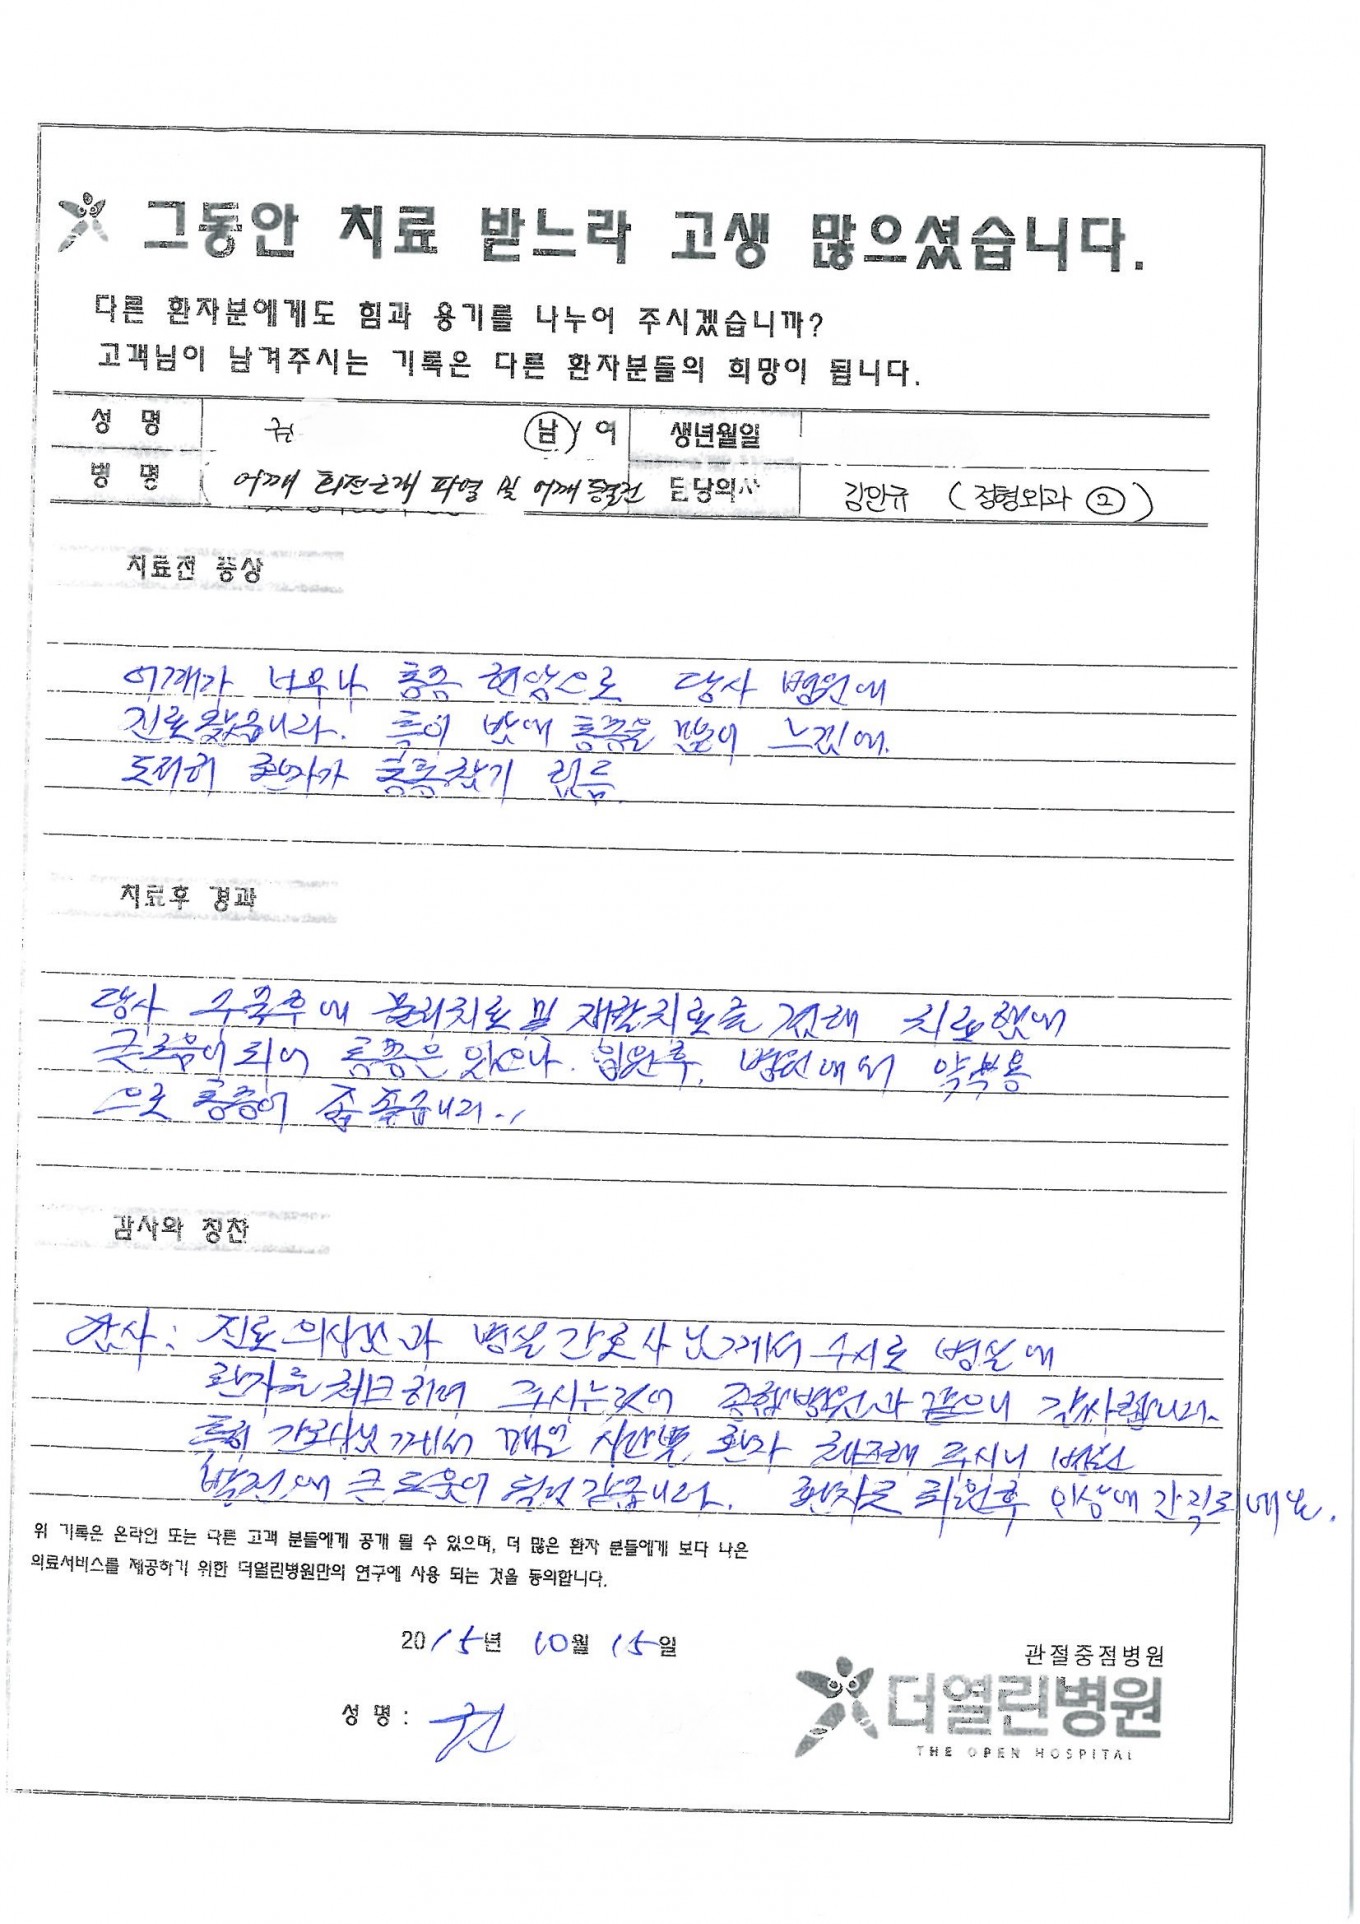 그동안 치료 받느라 고생 많으셨습니다.
다른 환자분에게도 힘과 용기를 나누어 주시겠습니까?
고객님이 남겨주시는 기록은 다른 환자분들의 희망이 됩니다.
성 명 권 남 / 여 생년월일
병 명 어깨 회전근개 파열 및 어깨 동결견 담당의사 김안규 (정형외과 ②)
치료전 증상
어깨가 너무나 통증 현상으로 당사 병원에
진료 왔습니다. 특히 밤에 통증을 많이 느낌에.
도저히 환자가 통증참기 힘듬
치료후 경과
당사 수술후에 물리치료 및 재활치료를 치료했에
통증은 있으나. 입원후. 병원에서 약복용
으로 통증이 좀
감사와 칭찬
감사: 진료 의사분과 병실 간호사 님께서 수시로 병실에
환자를 체크하여 주시는것이 종합병원과 같으니 감사드립니다.
특히 간호사님께서 매일 시간별 환자 체크해 주시니 병원
발전에 큰 도움이 될것 같습니다. 환자로 입원후 인상에 간직되네요.
위 기록은 온라인 또는 다른 고객 분들에게 공개 될 수 있으며, 더 많은 환자 분들에게 보다 나은
의료서비스를 제공하기 위한 더열린병원만의 연구에 사용 되는 것을 동의합니다.
2015년 10월 15일
관절중점병원
성 명 : 권
더열린병원
THE OPEN HOSPITAL